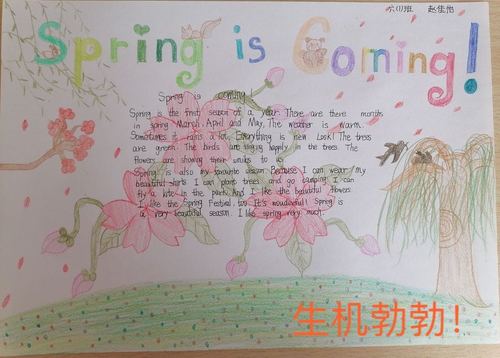 六(1)班
Spring is Coming!
Spring is coming
Spring is the first season of a year. There are there months
in spring March. April and May. The weather is warm.
Sometimes it rains a lot. Everything is new. Look! The trees
are green. The birds are singing happily in the trees. The
flowers are showing their smiles to
Spring is also my favourite season. Because I can wear my
beautiful shirts I can plant trees and go camping. I can
fly a kite in the park. And I like the beautiful flowers.
I like the Spring Festival, too. It's wonderful! Spring is
a very beautiful season. I like spring very much.
生机勃勃!